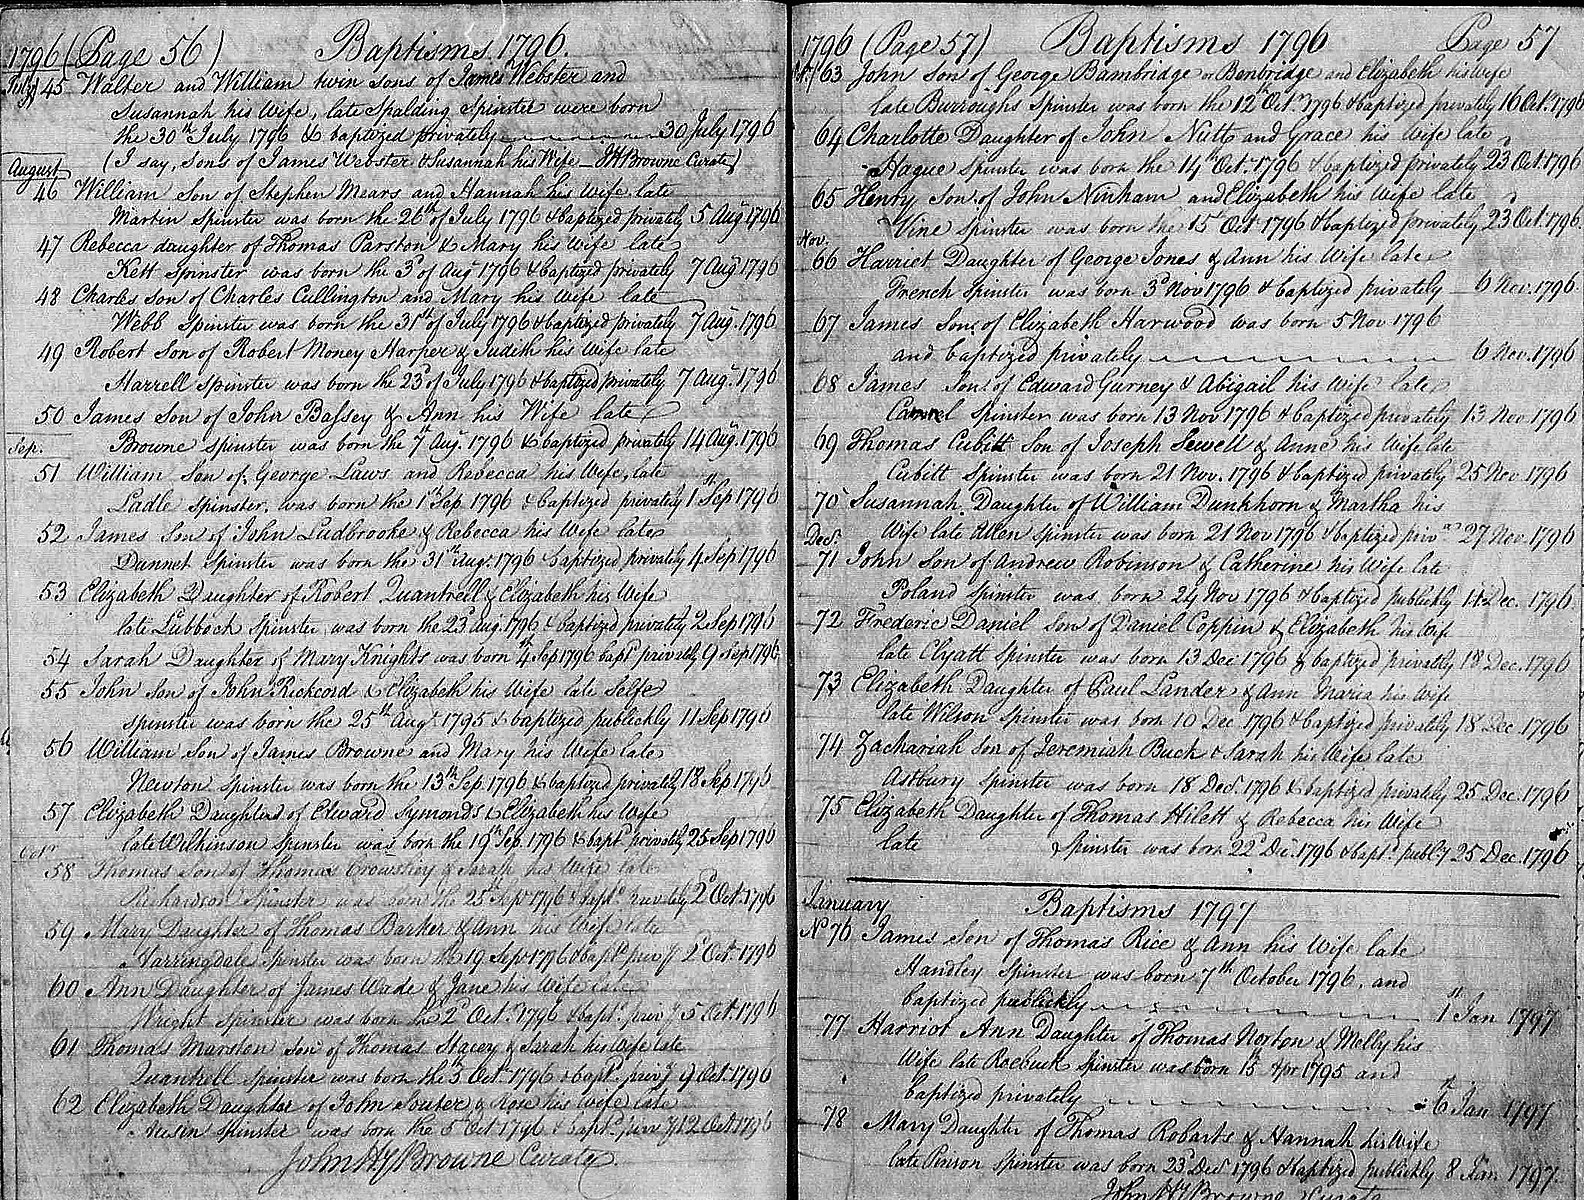 1796 (Page 56) Baptisms 1796.
July 45 Walter and William twin sons of James Webster and
Susannah his Wife, late Spalding Spinster were born
the 30th July 1796 & baptized privately 30 July 1796
(I say, Sons of James Webster & Susannah his Wife - JH Browne Curate)
August
46 William Son of Stephen Mears and Hannah his Wife late
Martin Spinster was born the 26th of July 1796 & baptized privately 5 Augt 1796
47 Rebecca daughter of Thomas Parston & Mary his Wife late
Kett Spinster was born the 3d of Augt 1796 & baptized privately 7 Augt 1796
48 Charles Son of Charles Cullington and Mary his Wife late
Webb Spinster was born the 31st of July 1796 & baptized privately 7 Aug. 1796
49 Robert Son of Robert Money Harper & Judith his Wife late
Harrell Spinster was born the 23d of July 1796 & baptized privately 7 Augt. 1796
50 James Son of John Bassey & Ann his Wife late
Sep.
Browne spinster was born the 7th Aug. 1796 & baptized privately 14 Augt. 1796
51 William Son of George Laws and Rebecca his Wife, late
Ladle Spinster, was born the 1st Sep. 1796 & baptized privately 1st Sep 1796
52 James Son of John Ludbrooke & Rebecca his Wife late
Dunnet Spinster was born the 31st Aug. 1796 & baptized privately 4 Sep 1796
53 Elizabeth Daughter of Robert Quantrell & Elizabeth his Wife
late Lubbock Spinster was born the 23d Aug. 1796 & baptized privately 2 Sep 1796
54 Sarah Daughter of Mary Knights was born 4 Sep 1796 bapd privately 9 Sep 1796
55 John Son of John Rickcord & Elizabeth his Wife late Selfe
spinster was born the 25th Augt 1795 & baptized publickly 11 Sep 1796
56 William Son of James Browne and Mary his Wife late
Newton Spinster was born the 13th Sep. 1796 & baptized privately 18 Sep 1796
57 Elizabeth Daughters of Edward Symonds & Elizabeth his Wife
late Wilkinson Spinster was born the 19th Sep. 1796 & bapd privately 25 Sep 1796
Octr
58 Thomas Son of Thomas & Sarah his Wife late
Richardson Spinster was born the 25th Sep 1796 & bapd privately 2d Oct. 1796
59 Mary Daughter of Thomas Barker & Ann his Wife late
Harringdale Spinster was born the 19 Sepr 1796 & bapd privy 2d Oct. 1796
60 Ann Daughter of James Wade & Jane his Wife late
Wright Spinster was born the 2d Oct. 1796 & bapd privy 5 Oct. 1796
61 Thomas Marston Son of Thomas Stacey & Sarah his Wife late
Quantrell Spinster was born the 3d Oct. 1796 & bapd privy 9 Oct. 1796
62 Elizabeth Daughter of John Souter & Rose his Wife late
Spinster was born the 5 Oct 1796 & bapd privy 12 Oct 1796
John Hy Browne Curate.
1796 (Page 57) Baptisms 1796 Page 57
63 John Son of George Bambridge or Benbridge and Elizabeth his Wife
late Burroughs Spinster was born the 12th Octr 1796 & baptized privately 16 Oct. 1796
64 Charlotte Daughter of John Nutt and Grace his Wife late
Hague Spinster was born the 14th Oct. 1796 & baptized privately 23d Oct. 1796
65 Henry Son of John Ninham and Elizabeth his Wife late
Vine Spinster was born the 15th Oct 1796 & baptized privately 23d Oct. 1796
Nov.
66 Harriet Daughter of George Jones & Ann his Wife late
French Spinster was born 3d Nov 1796 & baptized privately 6 Nov. 1796
67 James Son of Elizabeth Harwood was born 5 Nov 1796
and baptized privately 6 Nov. 1796
68 James Son of Edward Gurney & Abigail his Wife late
Spinster was born 13 Nov 1796 & baptized privately 13 Nov 1796
69 Thomas Cubitt Son of Joseph Sewell & Anne his Wife late
Cubitt Spinster was born 21 Nov. 1796 & baptized privately 25 Nov 1796
70 Susannah Daughter of William Dunkhorn & Martha his
Wife late Allen Spinster was born 21 Nov 1796 & baptized priv 27 Nov. 1796
Decr.
71 John Son of Andrew Robinson & Catherine his Wife late
Poland Spinster was born 24 Nov 1796 & baptized publickly Dec. 1796
72 Frederic Daniel Son of Daniel Coppin & Elizabeth his Wife
late Clyatt Spinster was born 13 Dec 1796 & baptized privately 18 Dec. 1796
73 Elizabeth Daughter of Paul Lander & Ann Maria his Wife
late Wilson Spinster was born 10 Dec 1796 & baptized privately 18 Dec 1796
74 Zachariah Son of Jeremiah Buck & Sarah his Wife late
Astbury Spinster was born 18 Dec. 1796 & baptized privately 25 Dec. 1796
75 Elizabeth Daughter of Thomas Hilett & Rebecca his Wife
late Spinster was born 22d Dec. 1796 & bapd. publy 25 Dec. 1796
January Baptisms 1797
No 76 James Son of Thomas Rice & Ann his Wife late
Handley Spinster was born 7th October 1796, and
baptized publickly 1st Jan 1797
77 Harriot Ann Daughter of Thomas Norton & Melly his
Wife late Roebuck Spinster was born 15th Apr 1795 and
baptized privately 6th Jan 1797
78 Mary Daughter of Thomas Robarts & Hannah his Wife
late Pinson Spinster was born 23d Decr 1796 & baptized publickly 8 Jan 1797.
John Hy Browne Curate